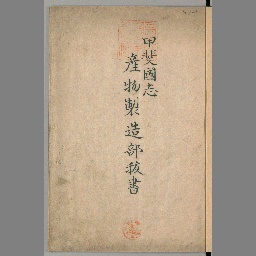 甲斐國志
産物製造部抜書